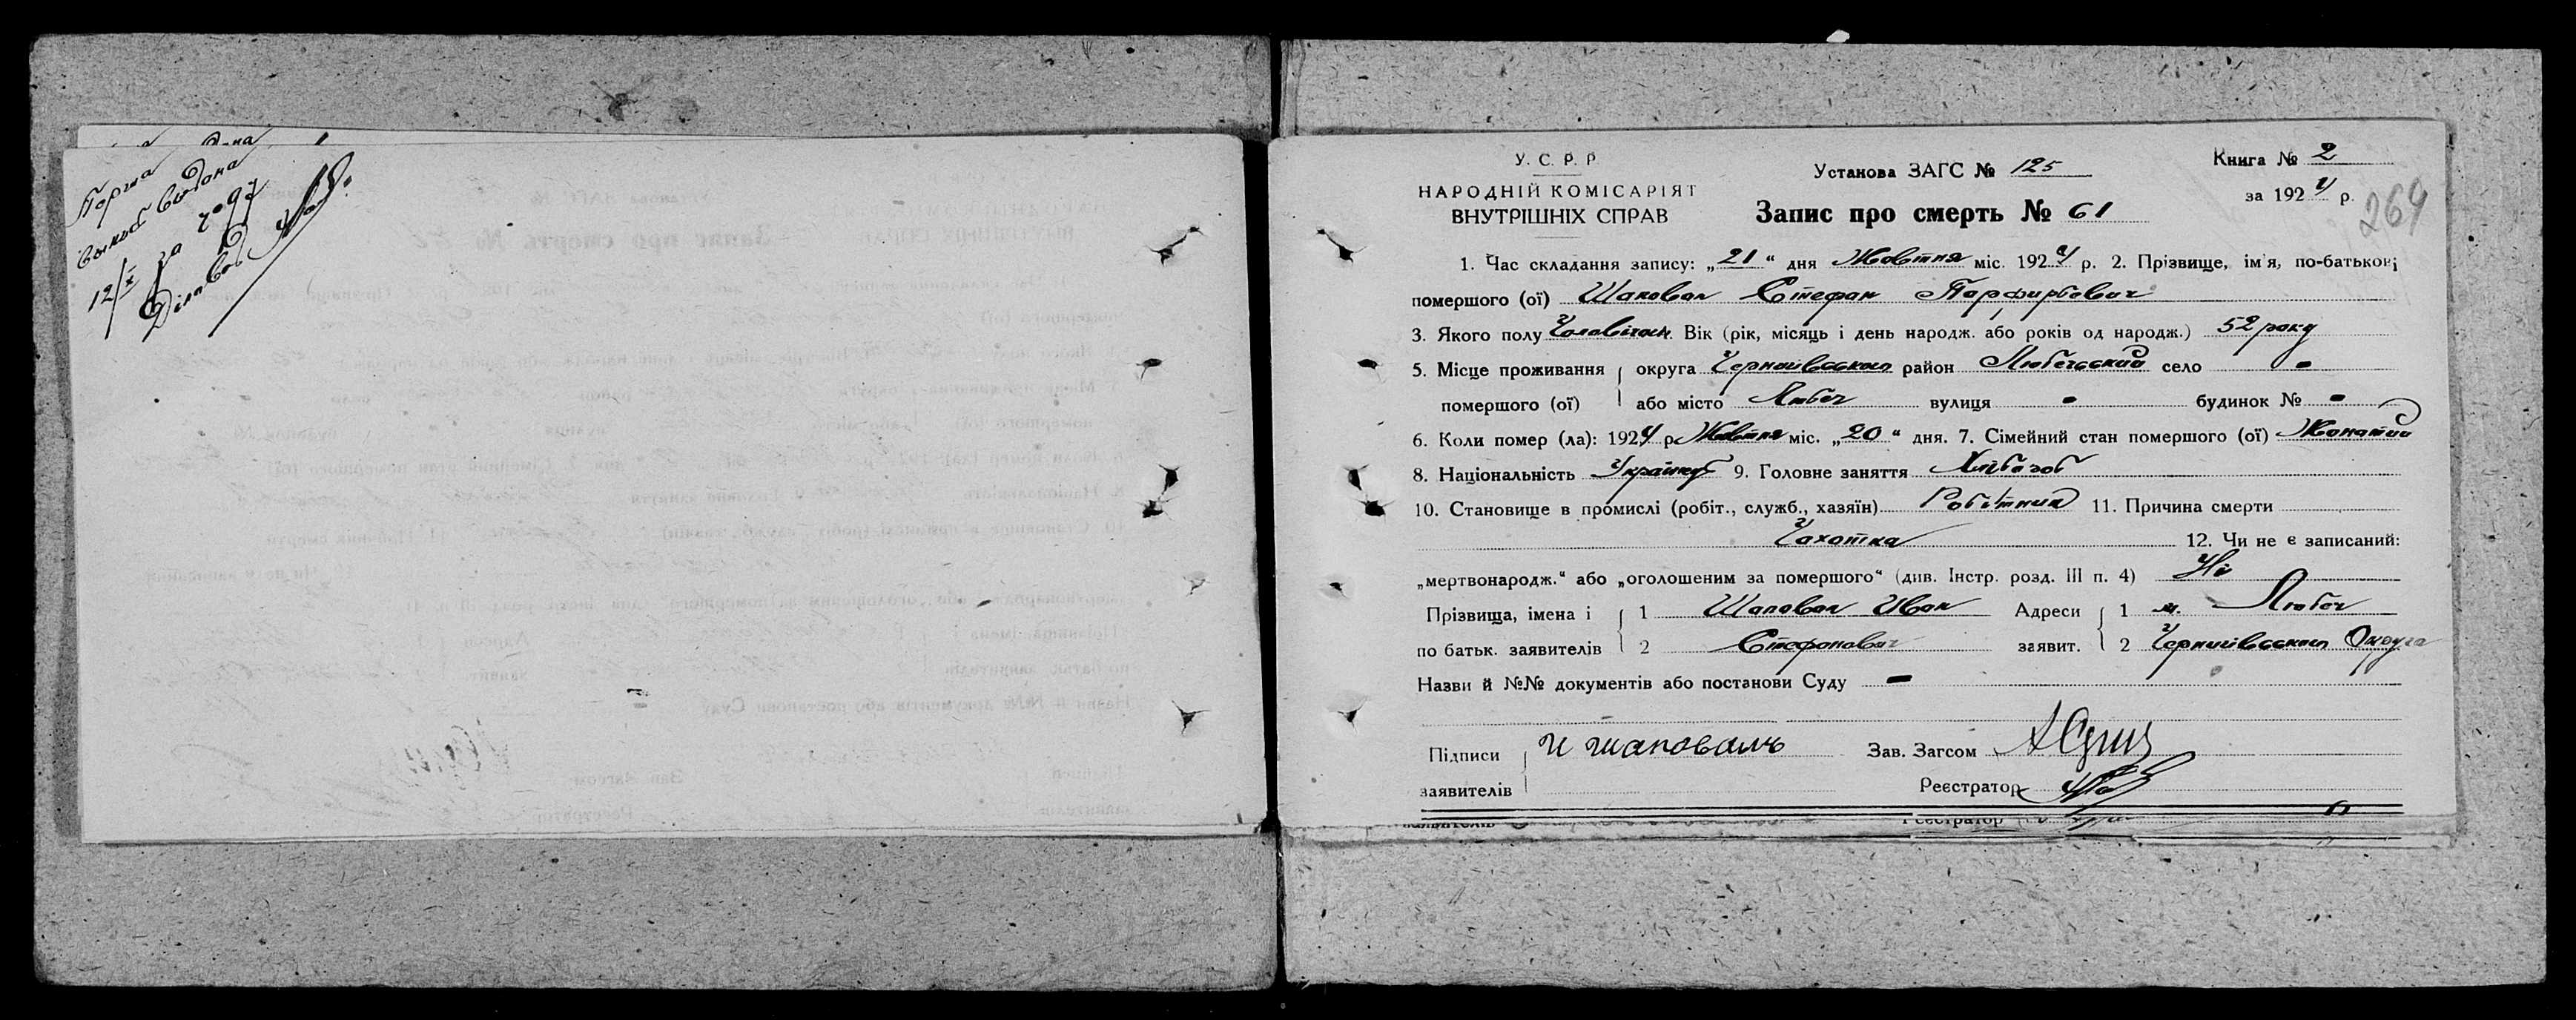 Перша
выпыс выдана
12/X за № 97
Діловод
У. С. Р. Р.
НАРОДНІЙ КОМІСАРІЯТ
ВНУТРІШНІХ СПРАВ
Установа ЗАГС № 125
Книга № 2
за 1924 р.
264
Запис про смерть № 61
1. Час складання запису: „21“ дня Жовтня міс. 1924 р. 2. Прізвище, ім'я, по-батькові
помершого (ої) Шаповал Стефан Порфирьевич
3. Якого полу Чоловічоі. Вік (рік, місяць і день народж. або років од народж.) 52 року
5. Місце проживання округа Чернигівськоі район Любечський село -
помершого (ої) або місто Любеч вулиця - будинок № -
6. Коли помер (ла): 1924 р. Жовтня міс. „20“ дня. 7. Сімейний стан помершого (ої) Жонатий
8. Національність Українец 9. Головне заняття Хлібороб
10. Становище в промислі (робіт., служб., хазяїн) Робітник 11. Причина смерти
Чахотка 12. Чи не є записаний:
„мертвонародж.“ або „оголошеним за помершого“ (див. Інстр. розд. III п. 4) Ні
Прізвища, імена і 1 Шаповал Иван Адреси 1 м. Любеч
по батьк. заявителів 2 Стефанович заявит. 2 Чернигівськоі Округа
Назви й №№ документів або постанови Суду -
Підписи И шаповалъ Зав. Загсом
заявителів Реєстратор
заявителів Реєстратор